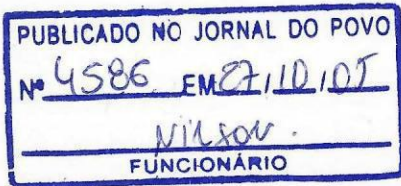 PUBLICADO NO JORNAL DO POVO
Nº 4586 EM 27,10,05
Nilson.
FUNCIONÁRIO